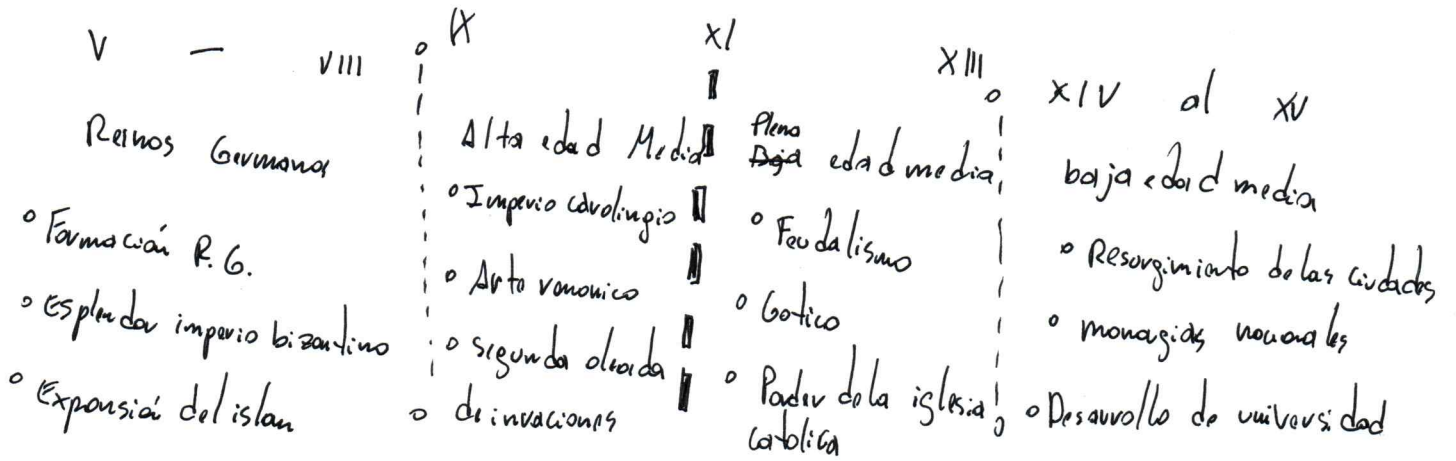 V — VIII
Reinos Germanos
Formación R.G.
Esplendor imperio bizantino
Expansión del islan
IX
Alta edad Media
Imperio carolingio
Arte romonico
segunda oleada
de invaciones
XI
XIII
Plena
Baja edad media
Feudalismo
Gotico
Poder de la iglesia
catolica
XIV al XV
baja edad media
Resurgimiento de las ciudades
Desarrollo de universidad